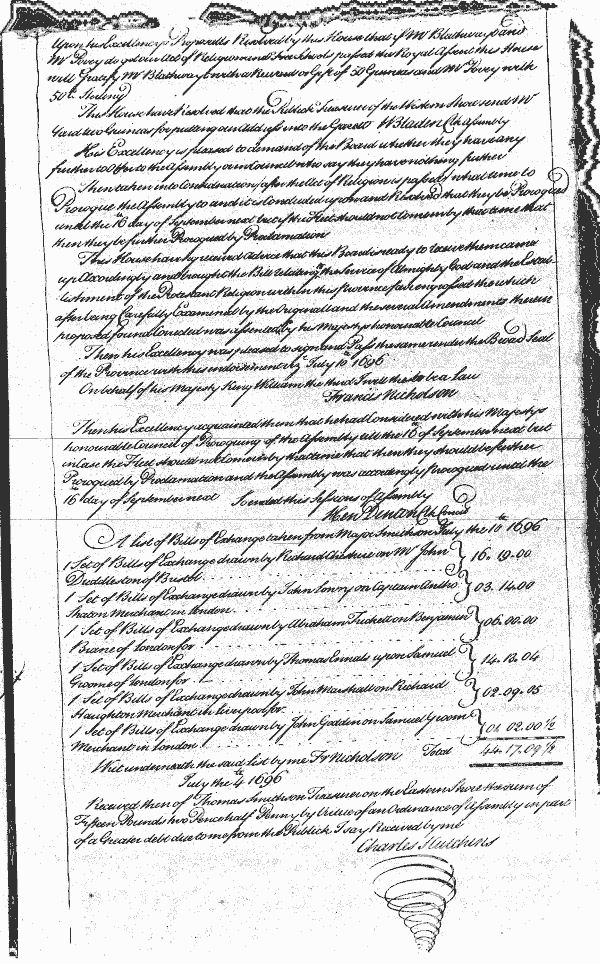 Upon his Excellencys Proposalls Resolved by this House that if Mr Blathwayt and
Mr Povey do get our Act of Religion and Free Schools passed the Royal Assent this House
will Gratify Mr Blathwayt with a Reward or Gift of 50 Guineas and Mr Povey with
50£ Sterling
This House have Resolved that the Publick Treasurer of the Western Shore send Mr
two Guineas for putting our Address into the Gazett W Bladen Cl Assembly
His Excellency is pleased to demand of the Board whether they have any
further to Offer to the Assembly or in Council who say they have nothing further
Then taken into Consideration (after the Act of Religion is passed) what time to
Prorogue the Assembly to and it is Concluded upon and Resolved that they be Prorogued
until the 16th day of September next but if the Fleet should not Come in by that time that
then they be further Prorogued by Proclamation
This House having received Advice that this Board is ready to receive them came
up Accordingly and brought the Bill relating to the Service of Almighty God and the Estab-
lishment of the Protestant Religion within this Province fairly engrossed the which
after being Carefully Examined by the Original and the several Amendments therein
proposed found Corrected was assented by his Majestys honourable Council
Then his Excellency was pleased to sign and Pass the same under the Broad Seal
of the Province with this endorsement viz July 10th 1696
On behalf of his Majesty King William the third I will this to be a Law
Francis Nicholson
Then his Excellency acquainted them that he had Considered with his Majestys
honourable Council of Proroguing of the Assembly till the 16th of September next but
in Case the Fleet should not Come in by that time that then they should be further
Prorogued by Proclamation and the Assembly was accordingly prorogued until the
16th day of September next So ended this Sessions of Assembly
Hen Denton Cl Council
A List of Bills of Exchange taken from Major Smithson July the 10th 1696
1 Set of Bills of Exchange drawn by Richard on Mr John } 16. 19.00
Duddleston of Bristol
1 Set of Bills of Exchange drawn by John Lowry on Captain Antho } 03. 14.00
Merchant in London
1 Set of Bills of Exchange drawn by Abraham on Benjamin } 06.00.00
of London for
1 Set of Bills of Exchange drawn by Thomas Ennals upon Samuel } 14. 13. 04
Groome of London for
1 Set of Bills of Exchange drawn by John Marshall on Richard } 02.09.05
Houghton Merchant in Liverpool for
1 Set of Bills of Exchange drawn by John Godden on Samuel Groome } 01 02.00½
Merchant in London
Wit underneath the said list by me Fr Nicholson Total 44. 17.09½
July the 4th 1696
Received then of Thomas Smithson Treasurer on the Eastern Shore the sum of
Fifteen Pounds two Pence half Penny by Virtue of an Ordinance of Assembly in part
of a Greater debt due to me from the Publick I say Received by me
Charles Hutchins